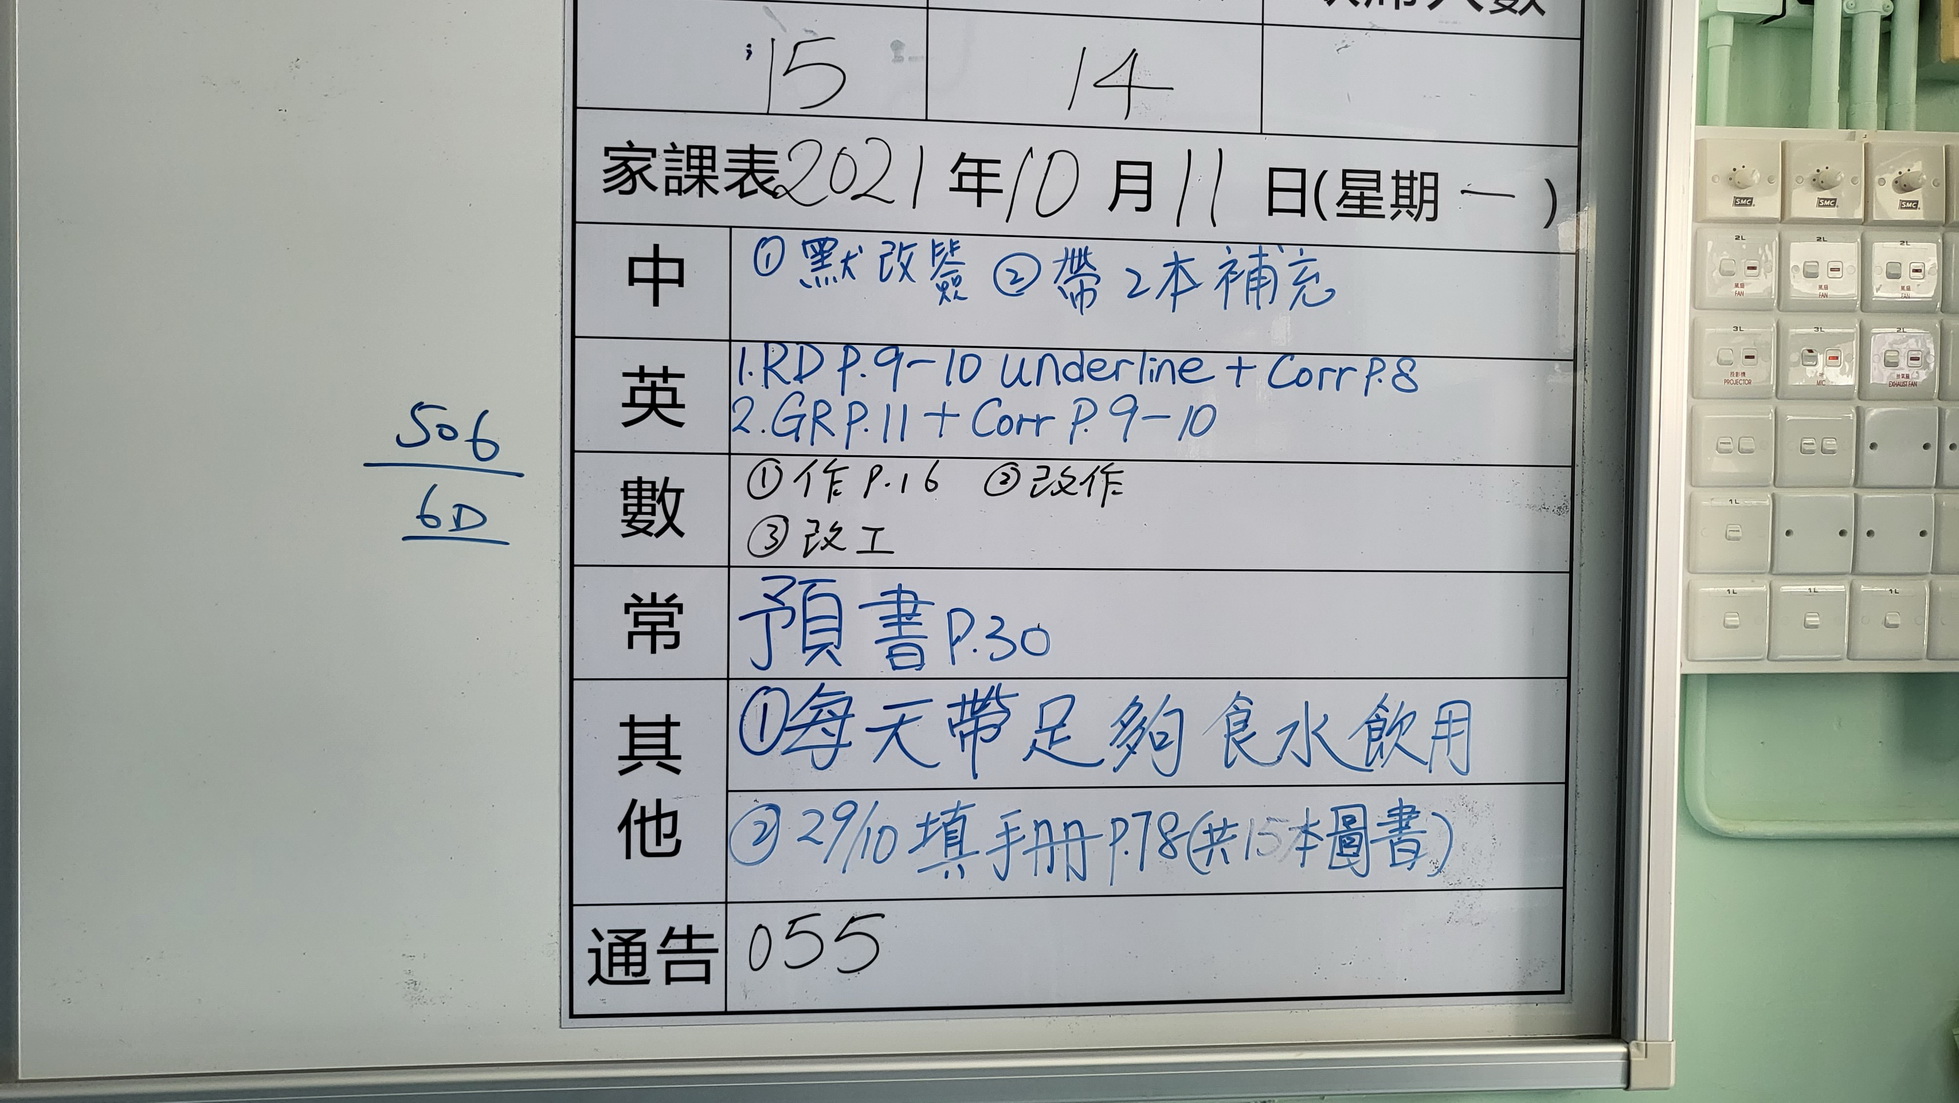 席人數
15 14
家課表2021年10月11日(星期一)
中 ①默改簽 ②帶2本補充
英 1.RD P.9-10 underline + Corr P.8
2.GR P.11 + Corr P.9-10
數 ①作P.16 ②改作
③改工
常 預書P.30
其他 ①每天帶足夠食水飲用
②29/10填手冊P.78(共15本圖書)
通告 055
506
6D
SMC SMC SMC
2L 2L 2L
風扇 FAN 風扇 FAN 風扇 FAN
3L 3L 2L
投影機 PROJECTOR MIC 抽氣扇 EXHAUST FAN
1L
1L 1L 1L